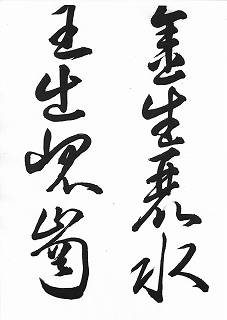 金生麗水
玉出崑崗